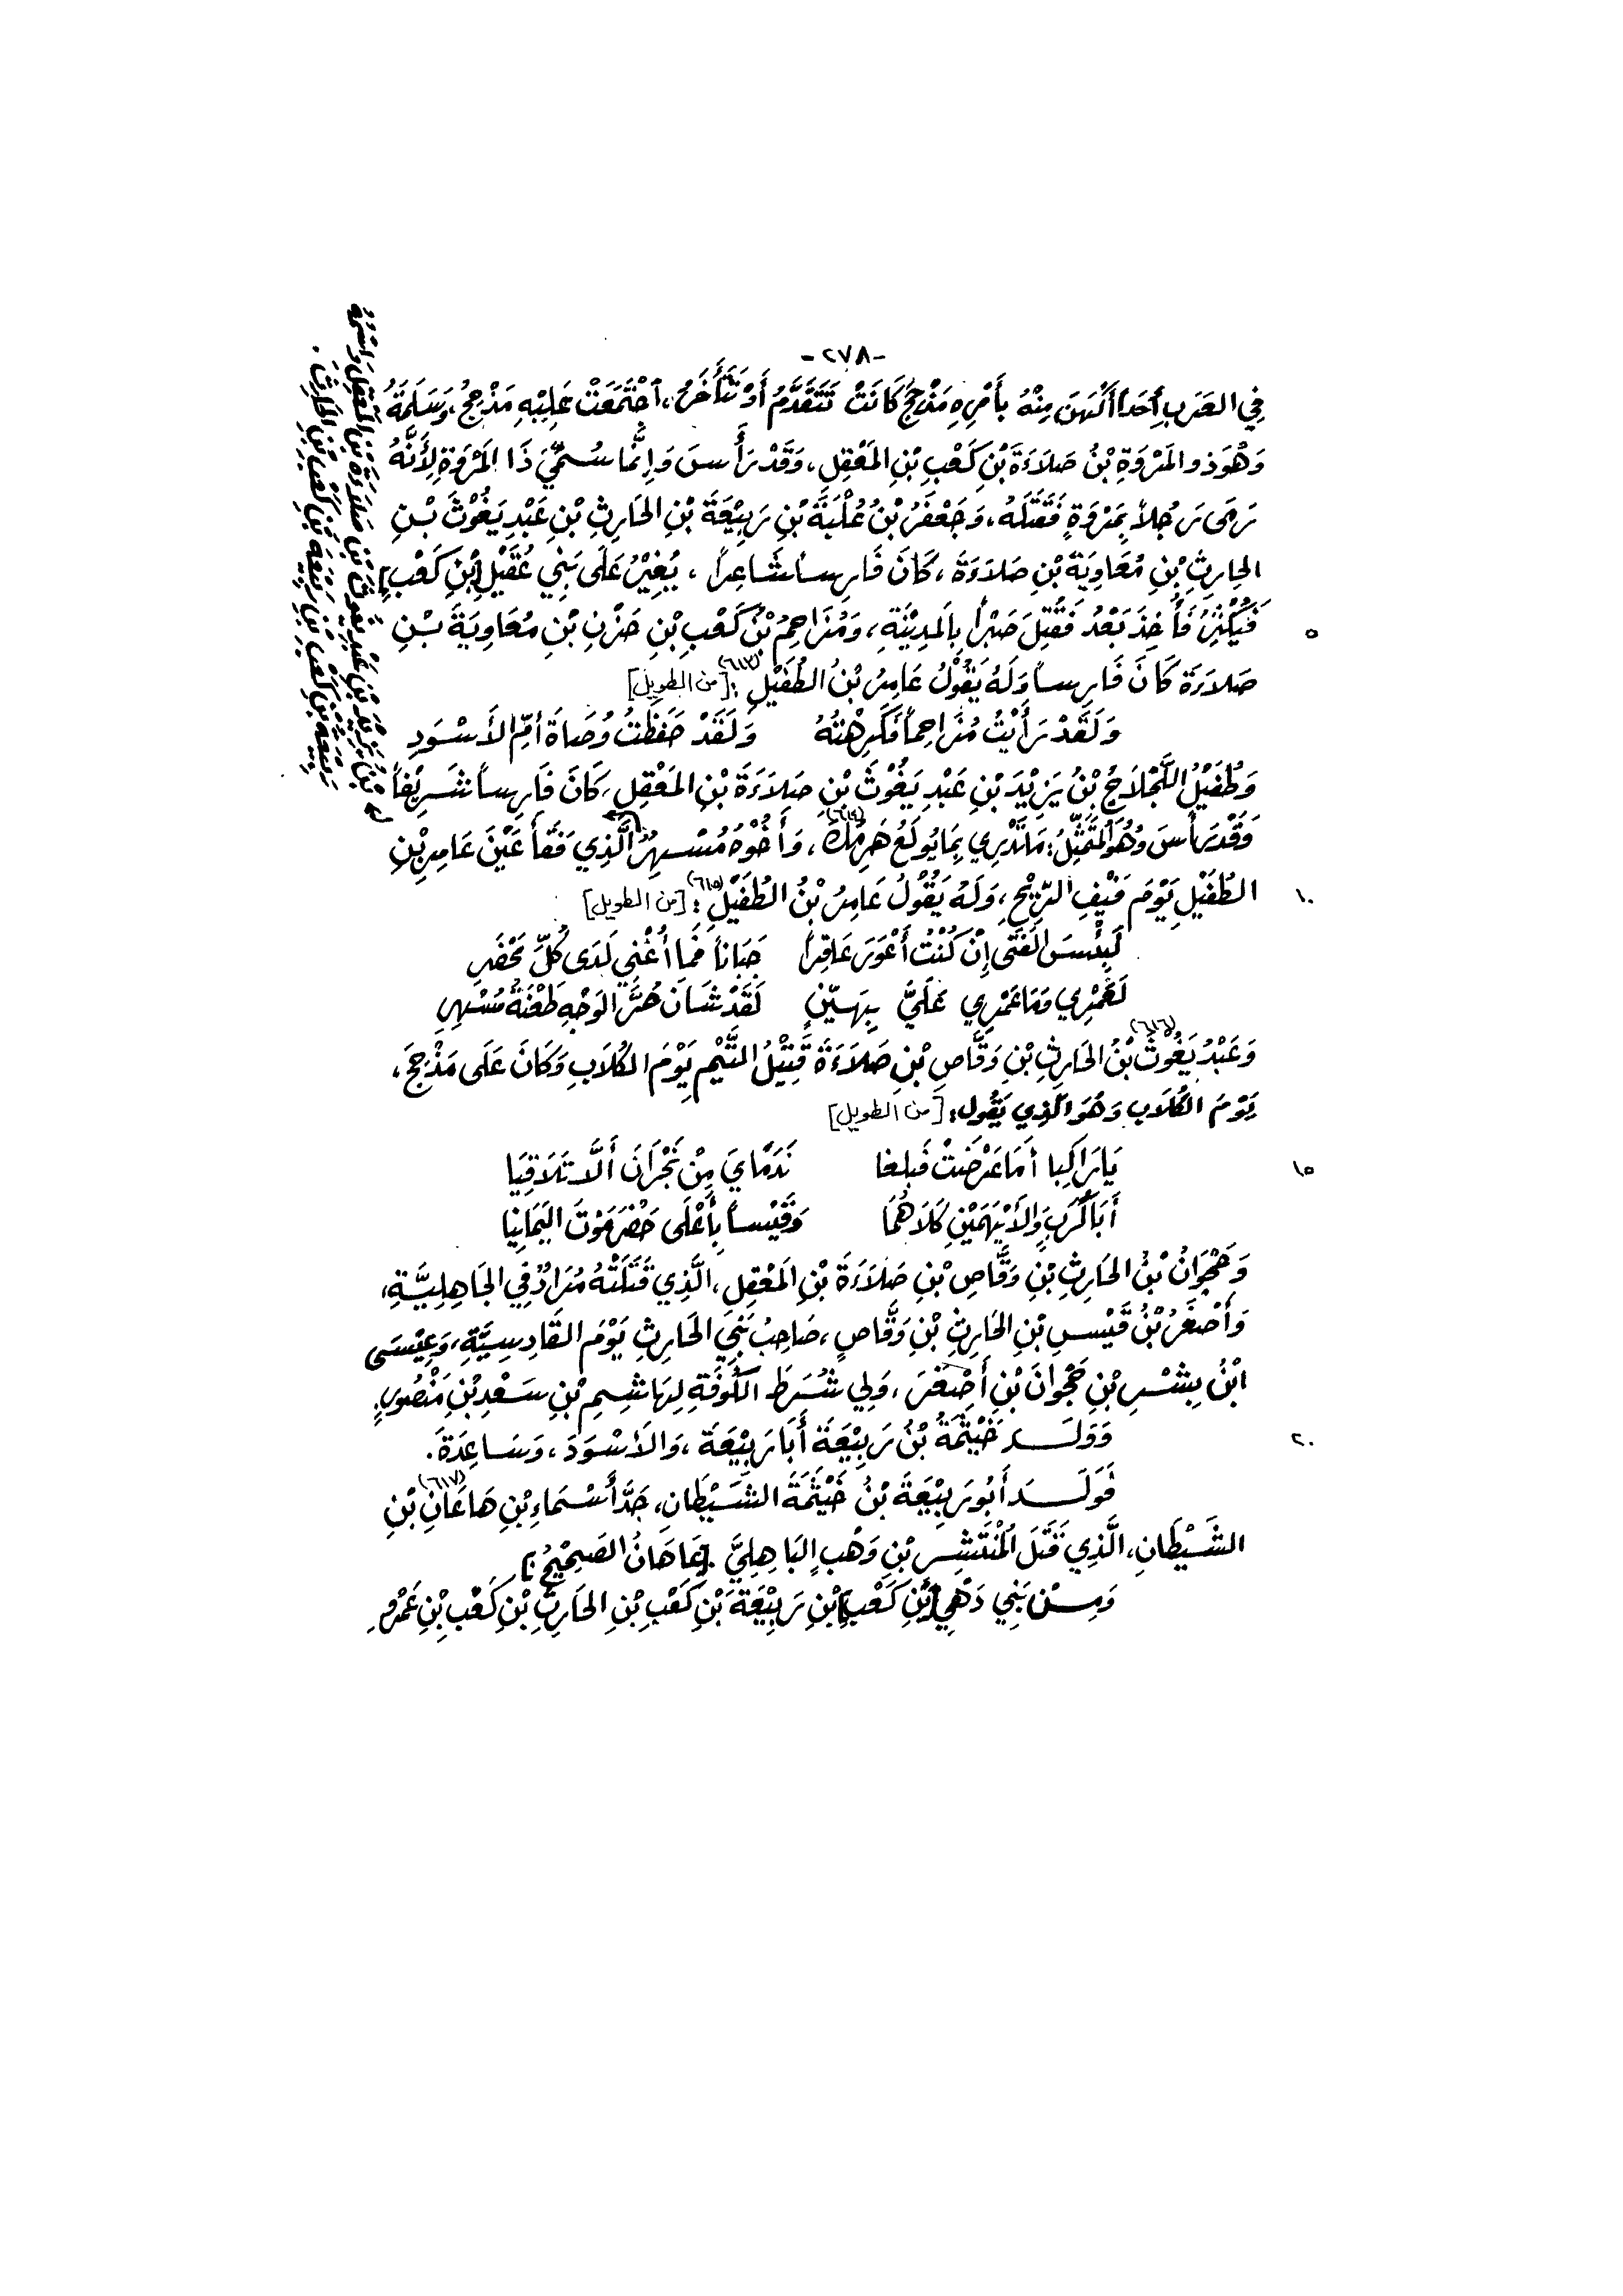 -٢٧٨-
فِي العَرَبِ أَحَداً أَلْهَنَ مِنْهُ بِأَمْرِهِ مَذْحِجٌ كَانَتْ تَتَقَدَّمُ أَوْ تَتَأَخَّرُ، اجْتَمَعَتْ عَلَيْهِ مَذْحِجُ، وَسَلَمَةُ
وَهُوَ ذو المَرْوَةِ بْنُ صَلاَءَةَ بْنِ كَعْبِ بْنِ المَعْقِلِ، وَقَدْ رَأَسَ وَإِنَّمَا سُمِّيَ ذَا المَرْوَةِ لِأَنَّهُ
رَمَى رَجُلاً بِمَرْوَةٍ فَقَتَلَهُ، وَجَعْفَرُ بْنُ عُلْبَةَ بْنِ رَبِيْعَةَ بْنِ الحَارِثِ بْنِ عَبْدِ يَغُوْثَ بْنِ
الحَارِثِ بْنِ مُعَاوِيَةَ بْنِ صَلاَءَةَ، كَانَ فَارِساً شَاعِراً، يُغِيْرُ عَلَى بَنِي عُقَيْلِ [بْنِ كَعْبٍ]
٥ فَيُكْثِرُ فَأُخِذَ بَعْدُ فَقُتِلَ صَبْراً بِالمَدِيْنَةِ، وَمُزَاحِمُ بْنُ كَعْبِ بْنِ حَزْنِ بْنِ مُعَاوِيَةَ بْنِ
صَلاَءَةَ كَانَ فَارِساً وَلَهُ يَقُوْلُ عَامِرُ بْنُ الطُّفَيْلِ (٦١٣): [من الطويل]
وَلَقَدْ رَأَيْتُ مُزَاحِماً فَكَرِهْتُهُ وَلَقَدْ حَفِظْتُ وُصَاةَ أُمِّ الأَسْوَدِ
وَطُفَيْلُ اللَّجْلاَجِ بْنُ يَزِيْدَ بْنِ عَبْدِ يَغُوْثَ بْنِ صَلاَءَةَ بْنِ المَعْقِلِ، كَانَ فَارِساً شَرِيْفاً
وَقَدْ رَأَسَ وَهُوَ المُتَمَثِّلُ: مَا تَدْرِي بِمَا يُولَعُ هَرِمُكَ (٦١٤)، وَأَخُوْهُ مُسْهِرٌ الَّذِي فَقَأَ عَيْنَ عَامِرِ بْنِ
١٠ الطُّفَيْلِ يَوْمَ فَيْفِ الرِّيْحِ، وَلَهُ يَقُوْلُ عَامِرُ بْنُ الطُّفَيْلِ (٦١٥): [من الطويل]
لَبِئْسَ الفَتَى إِنْ كُنْتُ أَعْوَرَ عَاقِراً جَبَاناً فَمَا أُغْنِي لَدَى كُلِّ مَحْضَرِ
لَعَمْرِي وَمَا عَمْرِي عَلَيَّ بِهَيِّنٍ لَقَدْ شَانَ حُرَّ الوَجْهِ طَعْنَةُ مُسْهِرِ
وَعَبْدُ يَغُوثَ (٦١٦) بْنُ الحَارِثِ بْنِ وَقَّاصِ بْنِ صَلاَءَةَ قَتِيْلُ التَّيْمِ يَوْمَ الكُلاَبِ وَكَانَ عَلَى مَذْحِجَ،
يَوْمَ الكُلاَبِ وَهُوَ الَّذِي يَقُول: [من الطويل]
١٥ يَا رَاكِبا أَمَا عَرَضْتَ فَبلغا نَدَمَايَ مِنْ نَجْرَانَ أَلَّا تَلاَقِيَا
أَبَا كَرَبٍ وَالأَيْهَمَيْنِ كلاَهُمَا وَقَيْساً بِأَعْلَى حَضْرَمَوْتَ اليَمَانِيا
وَحُجْوَانُ بْنُ الحَارِثِ بْنِ وَقَّاصِ بْنِ صَلاَءَةَ بْنِ المَعْقِلِ، الَّذِي قَتَلَتْهُ مُرَادٌ فِي الجَاهِلِيَّةِ،
وَأَصْغَرُ بْنُ قَيْسِ بْنِ الحَارِثِ بْنِ وَقَّاصٍ، صَاحِبُ بَنِي الحَارِثِ يَوْمَ القَادِسِيَّةِ، وَعِيْسَى
ابْنُ بِشْرِ بْنِ حُجْوَانَ بْنِ أَصْغَرَ، وَلِي شُرَطَ الكُوفَةِ لِهَاشِمِ بْنِ سَعْدِ بْنِ مَنْصُورٍ.
٢٠ وَوَلَـــدَ خَيْثَمَةُ بْنُ رَبِيْعَةَ أَبَا رَبِيْعَةَ، وَالأَسْوَدَ، وَسَاعِدَةَ.
فَوَلَـــدَ أَبُو رَبِيْعَةَ بْنُ خَيْثَمَةَ الشَّيْطَانِ، جَدَّ أَسْمَاءِ بْنِ هَاعَانِ (٦١٧) بْنِ
الشَّيْطَانِ، الَّذِي قَتَلَ المُنْتَشِرِ بْنِ وَهْبٍ البَاهِلِيَّ. [عَاهَانُ الصَحِيْحُ:]
وَمِـــنْ بَنِي دَهْيِ [بْنِ كَعْبِ] بْنِ رَبِيْعَةَ بْنِ كَعْبِ بْنِ الحَارِثِ بْنِ كَعْبِ بْنِ عَمْرٍو
بْنُ يَزِيْدَ بْنِ عَبْدِ يَغُوثَ بْنِ صَلاَءَةَ بْنِ المَعْقِلِ وَاسْمُهُ
رَبِيْعَة بْنِ كَعْبِ بْنِ رَبِيْعَةَ بْنِ كَعْبِ بْنِ الحَارِثِ.